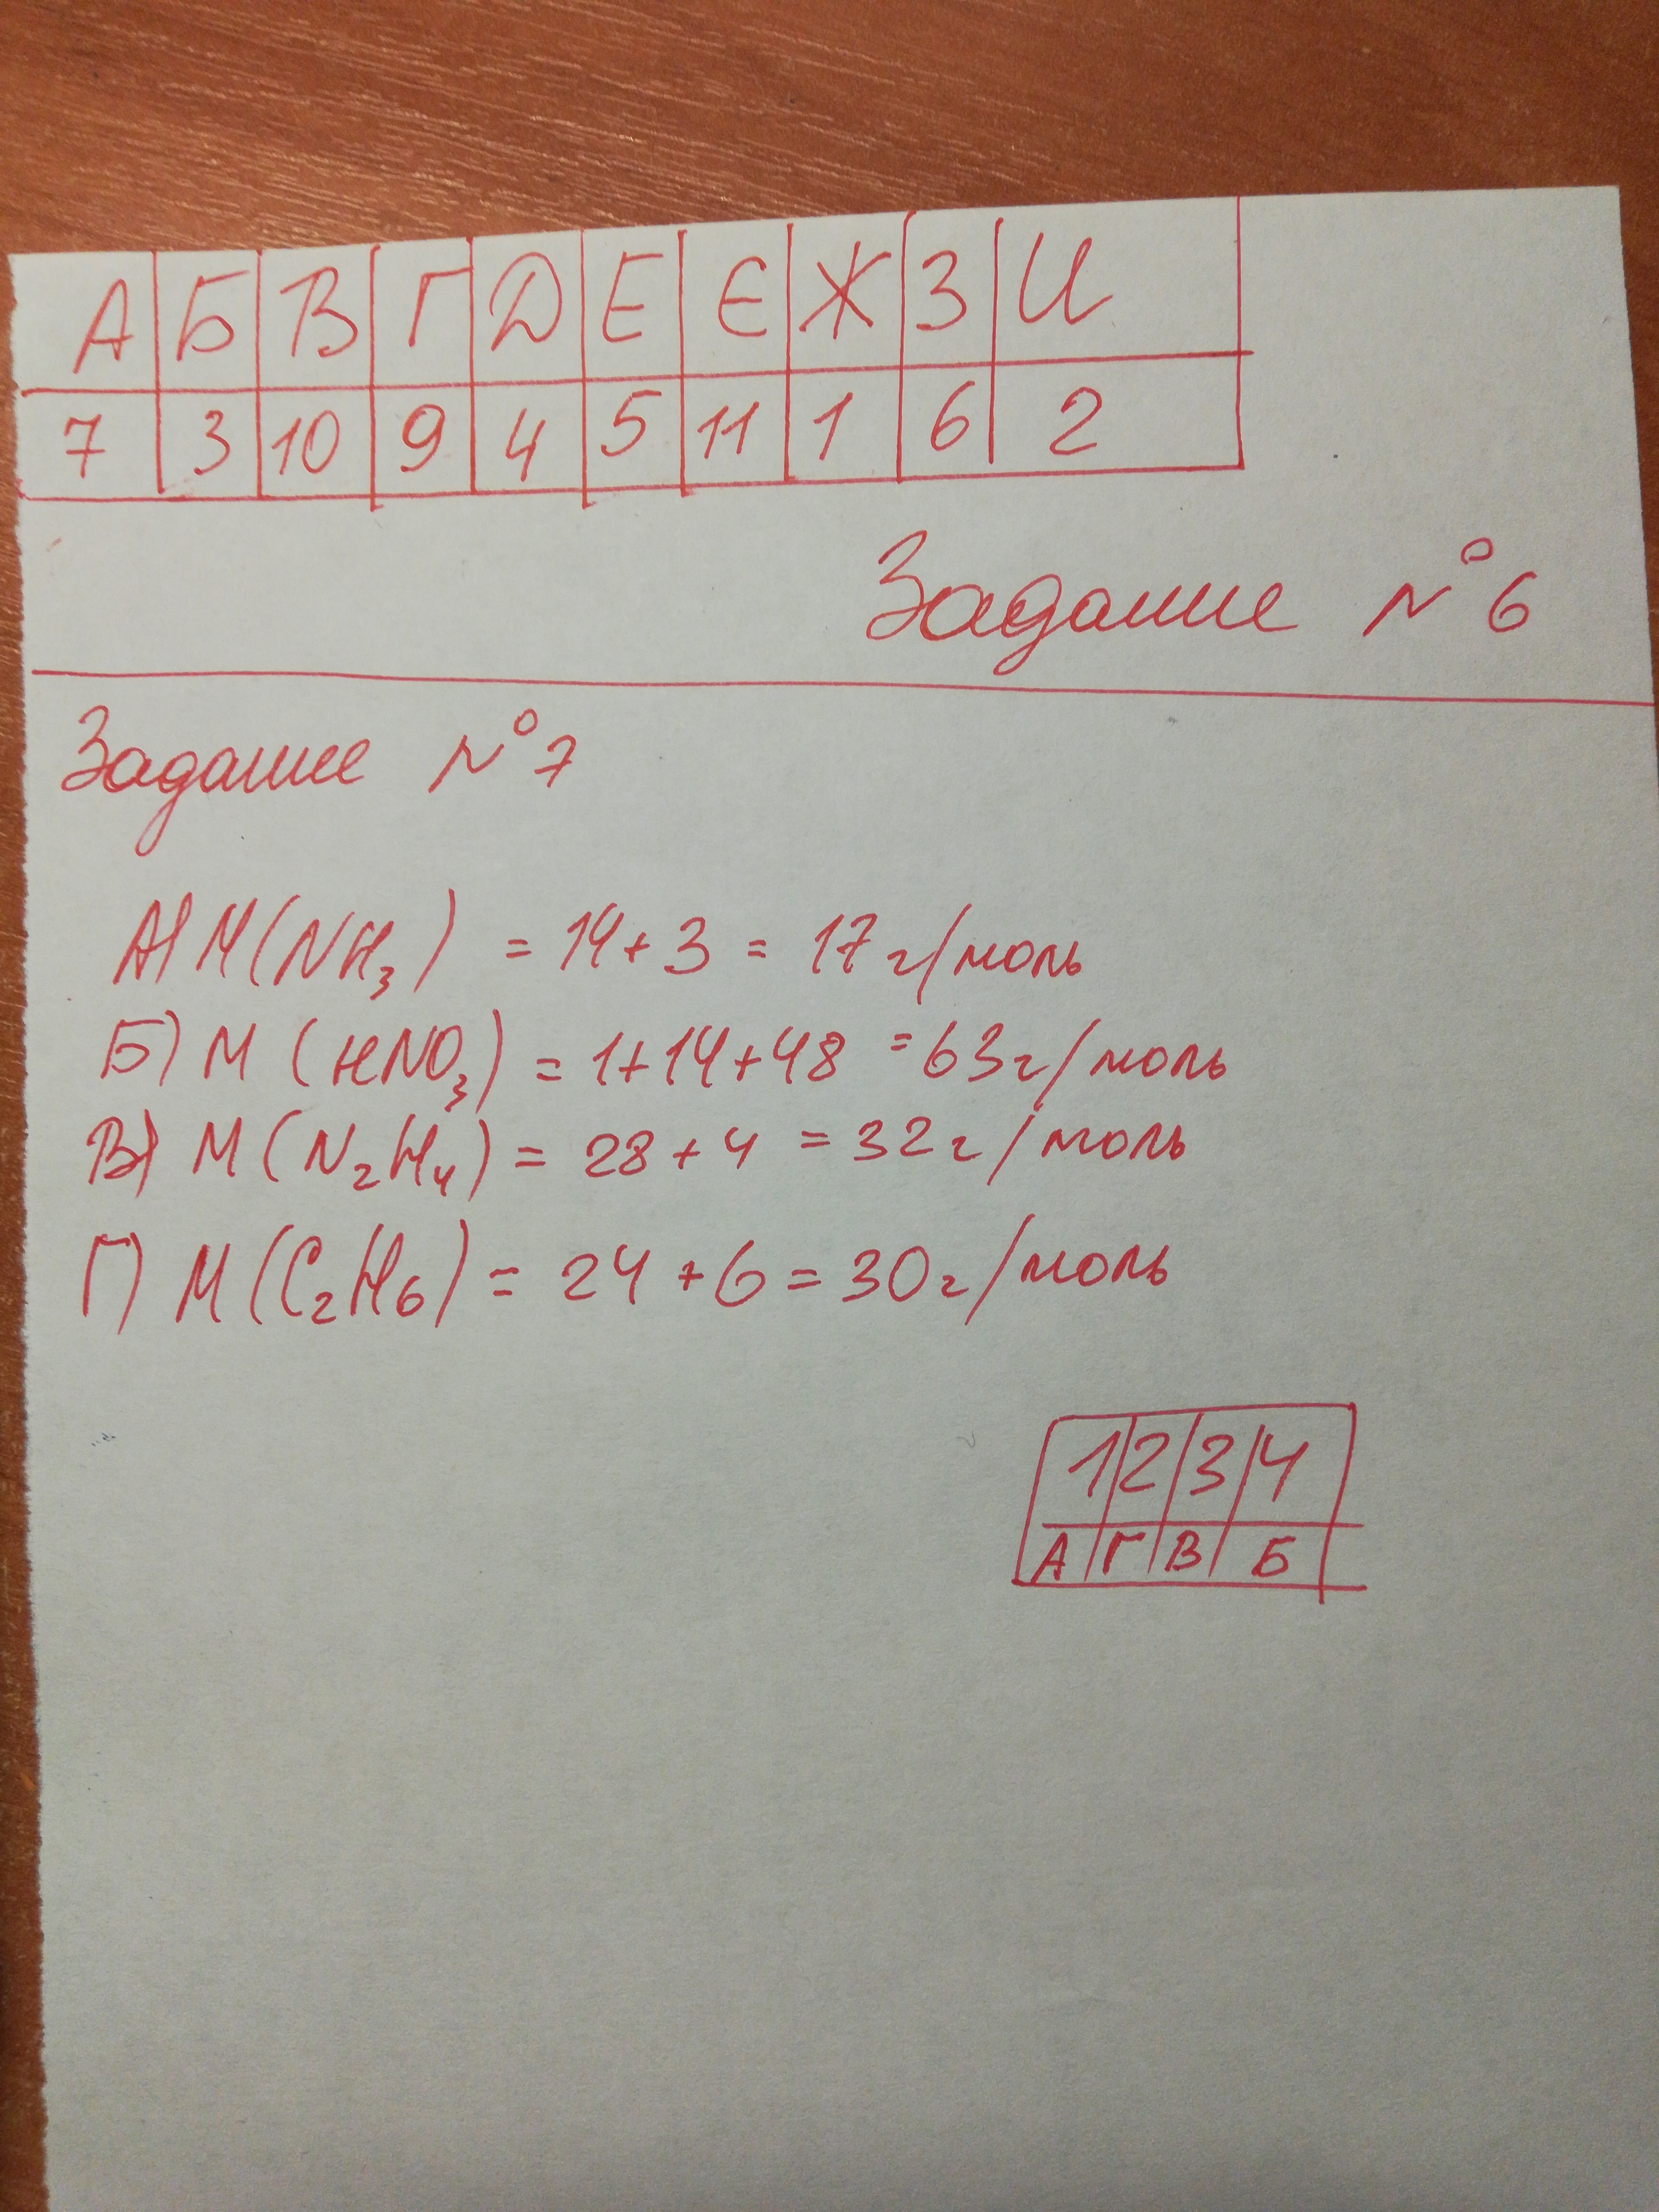 А Б В Г Д Е Є Ж З И
7 3 10 9 4 5 11 1 6 2
Задание №6
Задание №7
А) M(NH₃) = 14+3 = 17 г/моль
Б) M (HNO₃) = 1+14+48 = 63 г/моль
В) M (N₂H₄) = 28+4 = 32 г/моль
Г) M(C₂H₆) = 24+6 = 30 г/моль
1 2 3 4
А Г В Б